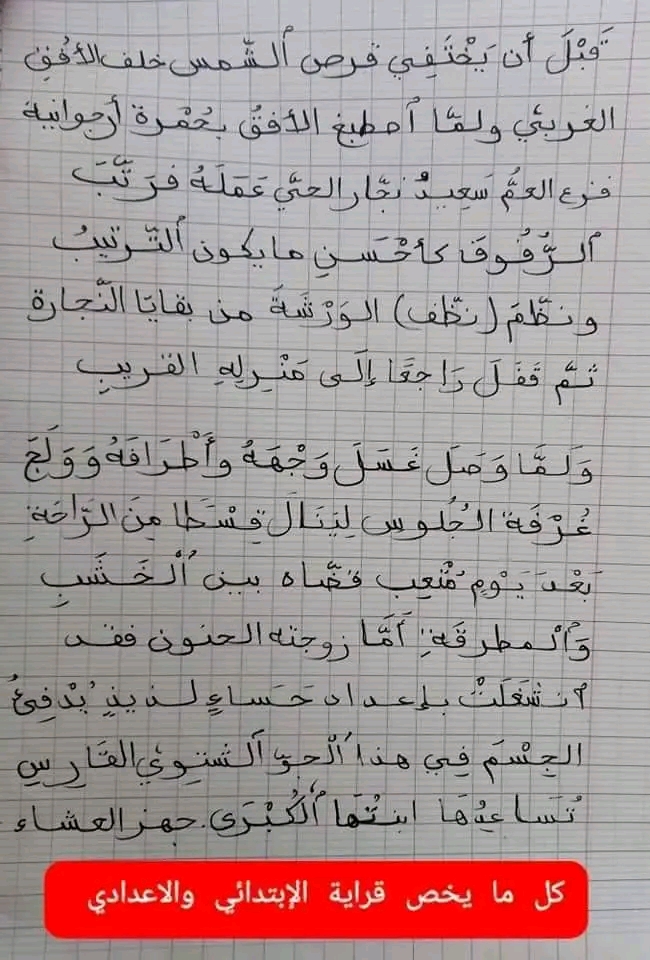 قَبْلَ أن يَخْتَفِي قرص ٱلشّمس خلف الأفُقِ
الغربيِّ ولمّا ٱصطبغ الأفقُ بحُمْرة أرجوانية
فرغ العمُّ سَعِيدٌ نجّار الحيِّ عَمَلَهُ فرَتَّبَ
ٱلرُّفُوفَ كأحْسَنِ ما يكون ٱلتّرتيبُ
ونظّمَ (نظّف) الوَرْشَةَ من بقايَا النّجارة
ثمّ قَفَلَ رَاجعًا إلَى مَنْزِلِهِ القريبِ
وَلَمَّا وَصَلَ غَسَلَ وَجْهَهُ وأَطْرَافَهُ وَوَلَجَ
غُرْفَةَ الجُلوسِ لِيَنَالَ قِسْطًا مِنَ الرَّاحَةِ
بَعْدَ يَوْمٍ مُتْعِب قضّاه بين ٱلْخَشَبِ
وَٱلْمطرقَةِ. أَمَّا زوجته الحنون فقد
ٱنشغَلَتْ بإعداد حَسَاءٍ لذيذٍ يُدْفِئُ
الجِسْمَ فِي هذا ٱلْجوّ ٱلشتوِيّ القَارِسِ
تُسَاعِدُهَا ابنتُهَا ٱلْكُبْرَى. جهز العشاء
كل ما يخص قراية الإبتدائي والاعدادي